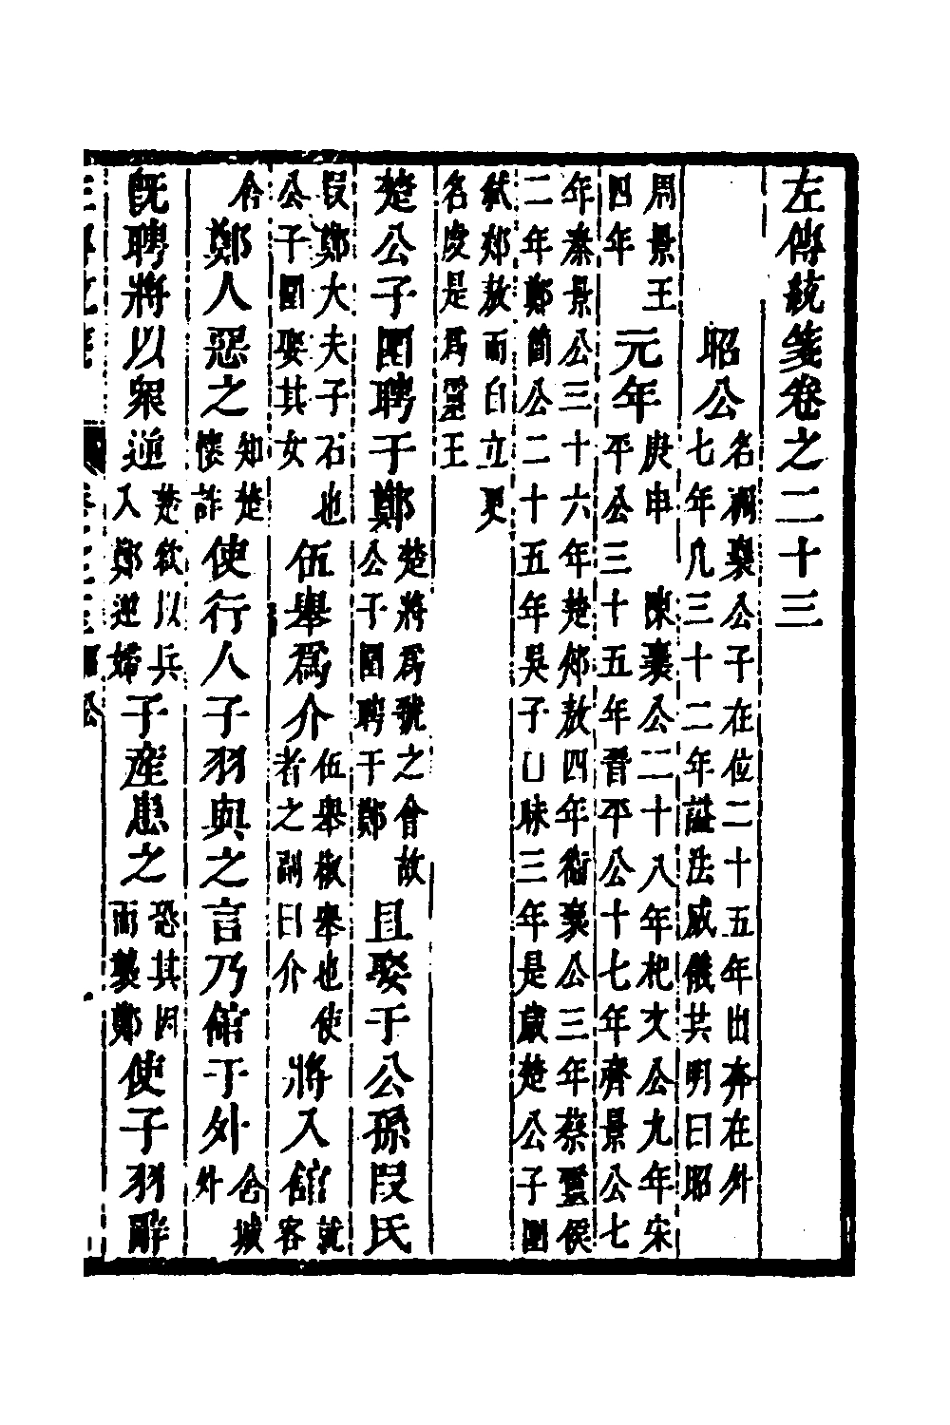 左傳統箋卷之二十三
昭公名裯襄公子在位二十五年出奔在外七年凡三十二年諡法威儀共明曰昭
周景王四年元年庚申陳襄公二十八年杞文公九年宋平公三十五年晉平公十七年齊景公七
年秦景公三十六年楚郟敖四年衞襄公三年蔡靈侯二年鄭簡公二十五年吳子昧三年是歲楚公子圍
弑郟敖而自立更名虔是爲靈王
楚公子圍聘于鄭楚將爲虢之會故公子圍聘于鄭且娶于公孫叚氏
叚鄭大夫子石也公子圍娶其女伍舉爲介伍舉椒舉也使者之副曰介將入館就客
舍鄭人惡之知楚懷詐使行人子羽與之言乃館于外舍城外
旣聘將以衆逆楚欲以兵入鄭逆婦子產患之恐其因而襲鄭使子羽辭